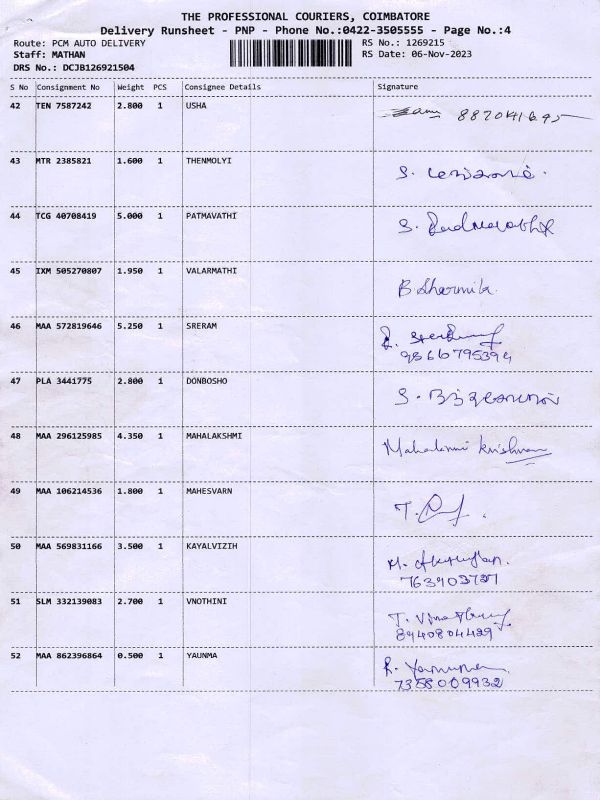 THE PROFESSIONAL COURIERS, COIMBATORE
Delivery Runsheet - PNP - Phone No.:0422-3505555 - Page No.:4
Route: PCM AUTO DELIVERY RS No.: 1269215
Staff: MATHAN RS Date: 06-Nov-2023
DRS No.: DCJB126921504
S No Consignment No Weight PCS Consignee Details Signature
42 TEN 7587242 2.800 1 USHA
43 MTR 2385821 1.600 1 THENMOLYI
44 TCG 40708419 5.000 1 PATMAVATHI
45 IXM 505270807 1.950 1 VALARMATHI B. Sharmila
46 MAA 572819646 5.250 1 SRERAM
9566795394
47 PLA 3441775 2.800 1 DONBOSHO
48 MAA 296125985 4.350 1 MAHALAKSHMI Mahalaxmi Krishnan
49 MAA 106214536 1.800 1 MAHESVARN
50 MAA 569831166 3.500 1 KAYALVIZIH
51 SLM 332139083 2.700 1 VNOTHINI
8940804489
52 MAA 862396864 0.500 1 YAUNMA R. Yamuna
7358009932